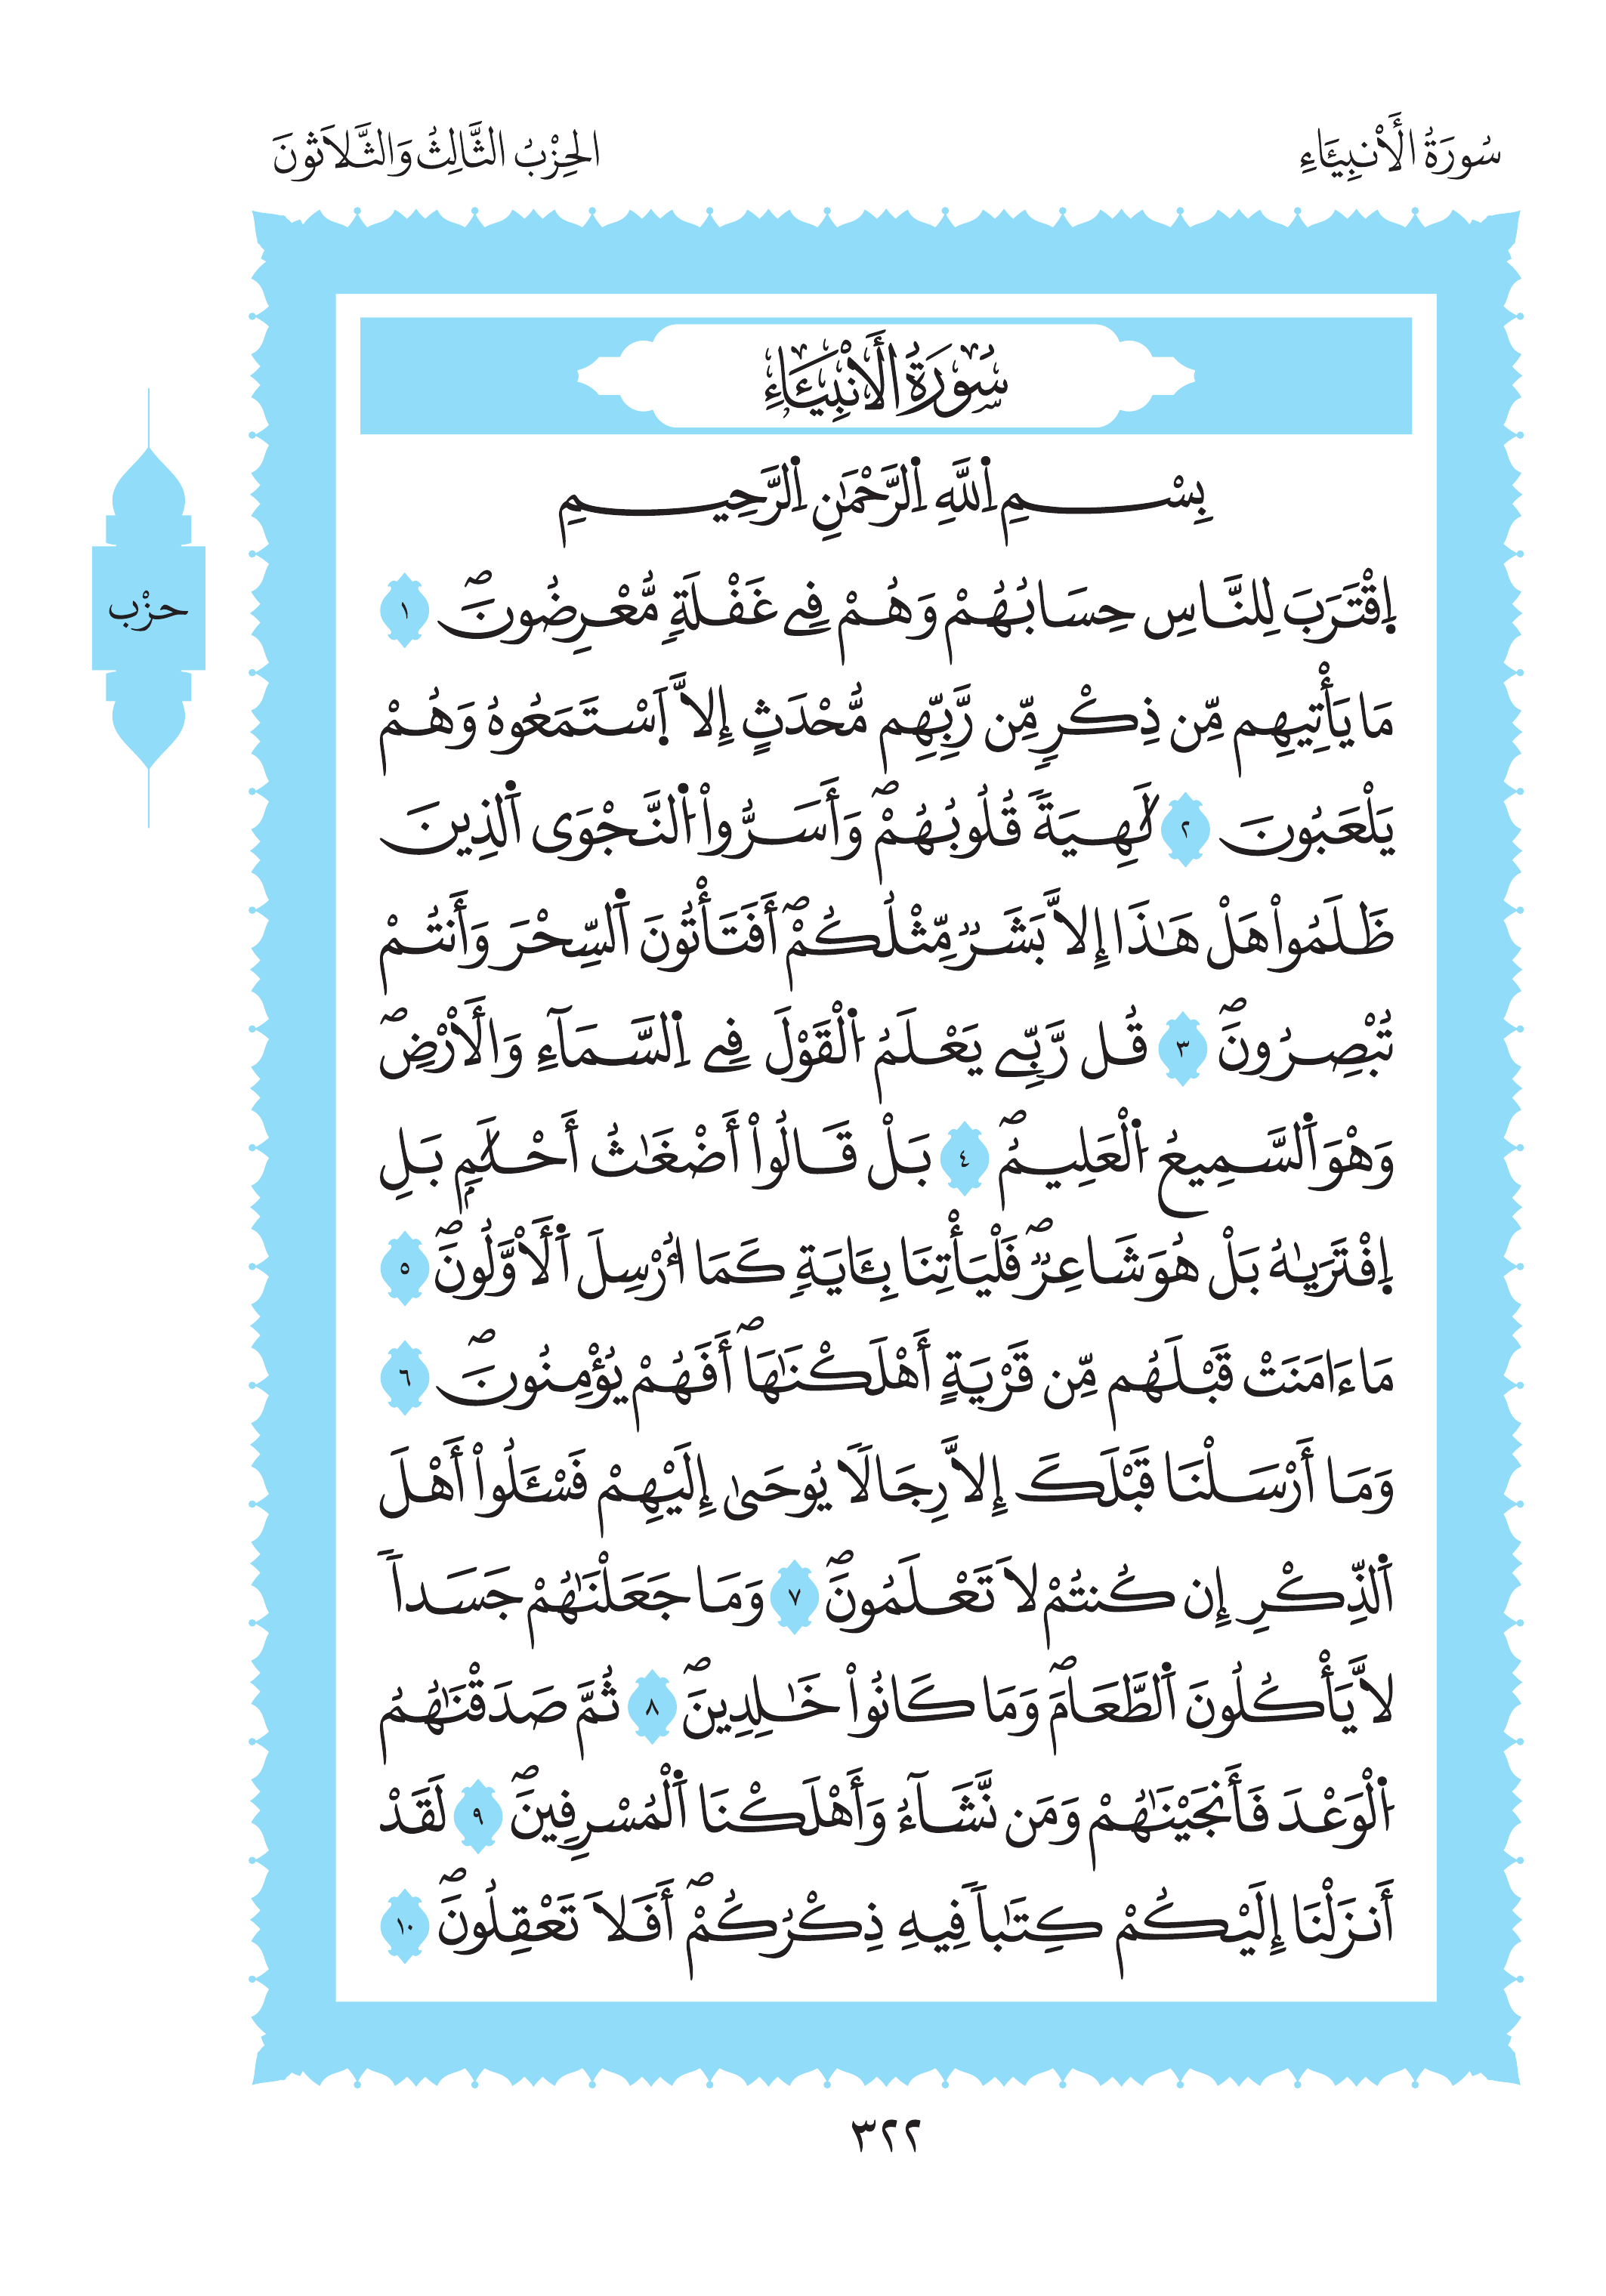 سُورَةُ الْأَنبِيَاءِ
الحِزْبُ الثَّالِثُ وَالثَّلَاثُونَ
سُورَةُ الْأَنْبِيَاءِ
بِسْمِ اِ۬للَّهِ اِ۬لرَّحْمَٰنِ اِ۬لرَّحِيمِ
حزْب
اِ۪قْتَرَبَ لِلنَّاسِ حِسَابُهُمْ وَهُمْ فِے غَفْلَةٖ مُّعْرِضُونَۖ ١
مَا يَأْتِيهِم مِّن ذِكْرٖ مِّن رَّبِّهِم مُّحْدَثٍ إِلاَّ اَ۪سْتَمَعُوهُ وَهُمْ
يَلْعَبُونَ ٢ لَٰهِيَةٗ قُلُوبُهُمْۖ وَأَسَرُّواْ اُ۬لنَّجْوَى اَ۬لذِينَ
ظَلَمُواْ هَلْ هَٰذَا إِلاَّ بَشَرٞ مِّثْلُكُمْۖ أَفَتَأْتُونَ اَ۬لسِّحْرَ وَأَنتُمْ
تُبْصِرُونَۖ ٣ قُل رَّبِّے يَعْلَمُ اُ۬لْقَوْلَ فِے اِ۬لسَّمَآءِ وَالْأَرْضِۖ
وَهْوَ اَ۬لسَّمِيعُ اُ۬لْعَلِيمُۖ ٤ بَلْ قَالُواْ أَضْغَٰثُ أَحْلَٰمِۢ بَلِ
اِ۪فْتَرَيٰهُ بَلْ هُوَ شَاعِرٞۖ فَلْيَأْتِنَا بِـَٔايَةٖ كَمَا أُرْسِلَ اَ۬لْأَوَّلُونَۖ ٥
مَا ءَامَنَتْ قَبْلَهُم مِّن قَرْيَةٍ أَهْلَكْنَٰهَاۖ أَفَهُمْ يُؤْمِنُونَۖ ٦
وَمَا أَرْسَلْنَا قَبْلَكَ إِلاَّ رِجَالٗا يُوحَىٰ إِلَيْهِمْ فَسْـَٔلُواْ أَهْلَ
اَ۬لذِّكْرِ إِن كُنتُمْ لاَ تَعْلَمُونَۖ ٧ وَمَا جَعَلْنَٰهُمْ جَسَداٗ
لاَّ يَأْكُلُونَ اَ۬لطَّعَامَۖ وَمَا كَانُواْ خَٰلِدِينَۖ ٨ ثُمَّ صَدَقْنَٰهُمُ
اُ۬لْوَعْدَ فَأَنجَيْنَٰهُمْ وَمَن نَّشَآءُ وَأَهْلَكْنَا اَ۬لْمُسْرِفِينَۖ ٩ لَقَدْ
أَنزَلْنَا إِلَيْكُمْ كِتَٰباٗ فِيهِ ذِكْرُكُمْۖ أَفَلاَ تَعْقِلُونَۖ ١٠
٣٢٢